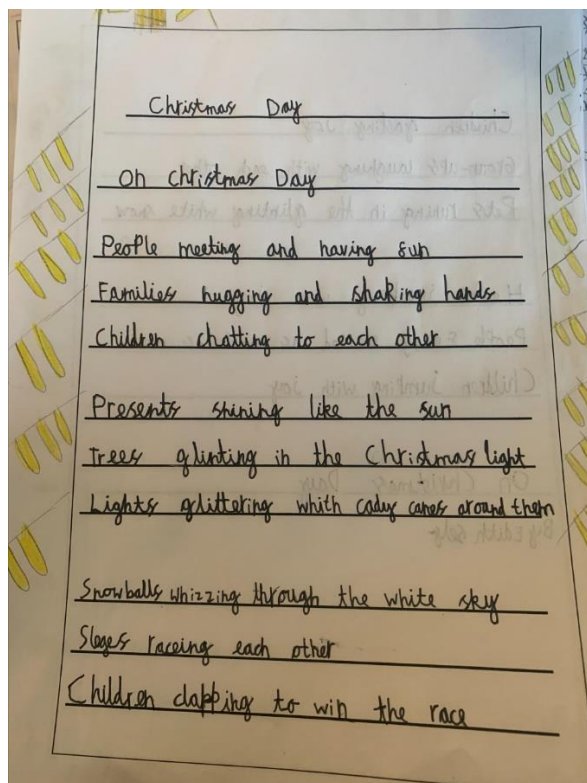 Christmas Day
On christmas Day
People meeting and having sun
Families hugging and shaking hands
Children chatting to each other
Presents shining like the sun
Trees glinting in the Christmas light
Lights glittering whith cady canes around them
Snowballs whizzing through the white sky
Sleges raceing each other
Children clapping to win the race